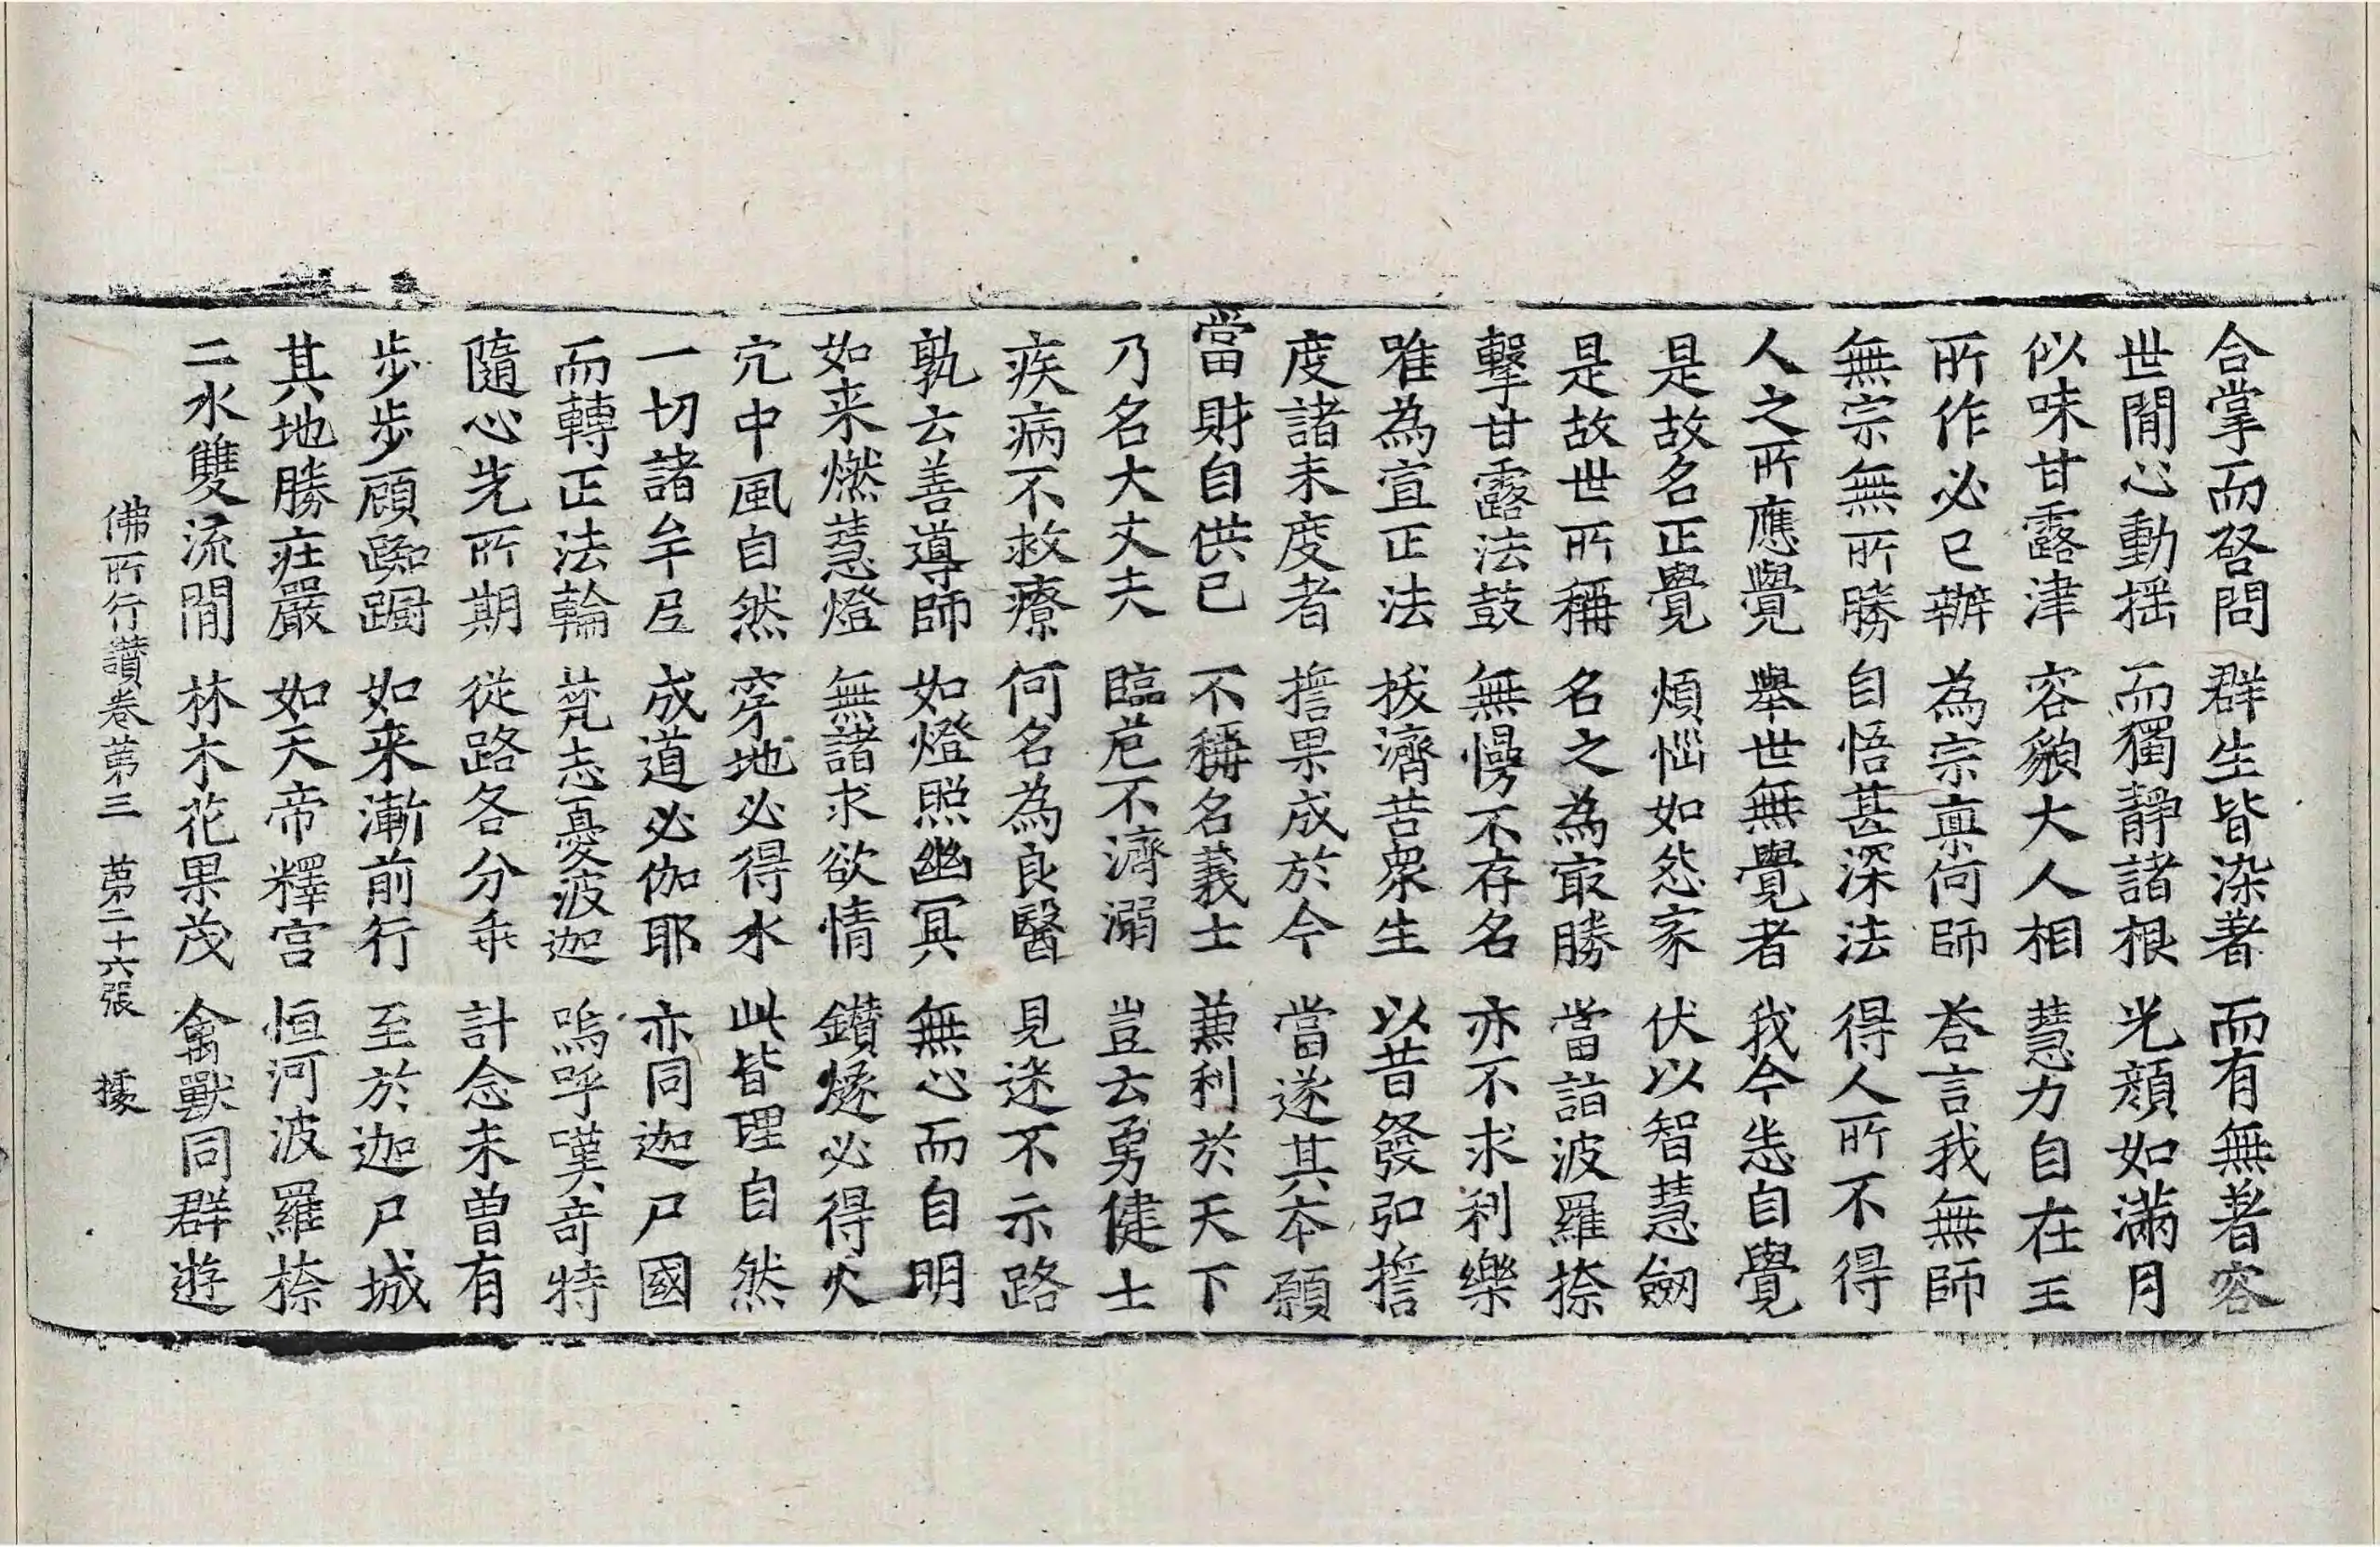 合掌而啓問 群生皆染著 而有無著容
世閒心動揺 而獨靜諸根 光顔如滿月
似味甘露津 容貌大人相 慧力自在王
所作必已辦 為宗稟何師 荅言我無師
無宗無所勝 自悟甚深法 得人所不得
人之所應覺 舉世無覺者 我今悉自覺
是故名正覺 煩惱如怨家 伏以智慧劒
是故世所稱 名之為㝡勝 當詣波羅捺
擊甘露法鼓 無慢不存名 亦不求利樂
唯為宣正法 拔濟苦衆生 以昔發弘誓
度諸未度者 誓果成於今 當遂其本願
當財自供已 不稱名義士 兼利於天下
乃名大丈夫 臨危不濟溺 豈云勇健士
疾病不救療 何名為良醫 見迷不示路
孰云善導師 如燈照幽冥 無心而自明
如来燃慧燈 無諸求欲情 鑽燧必得火
宂中風自然 穿地必得水 此皆理自然
一切諸牟尼 成道必伽耶 亦同迦尸國
而轉正法輪 梵志憂波迦 嗚呼嘆竒特
隨心先所期 從路各分乖 計念未曽有
步步顧踟蹰 如来漸前行 至於迦尸城
其地勝莊嚴 如天帝釋宫 恒河波羅捺
二水雙流閒 林木花果茂 禽獸同群遊
佛所行讃卷第三 第二十六張 據